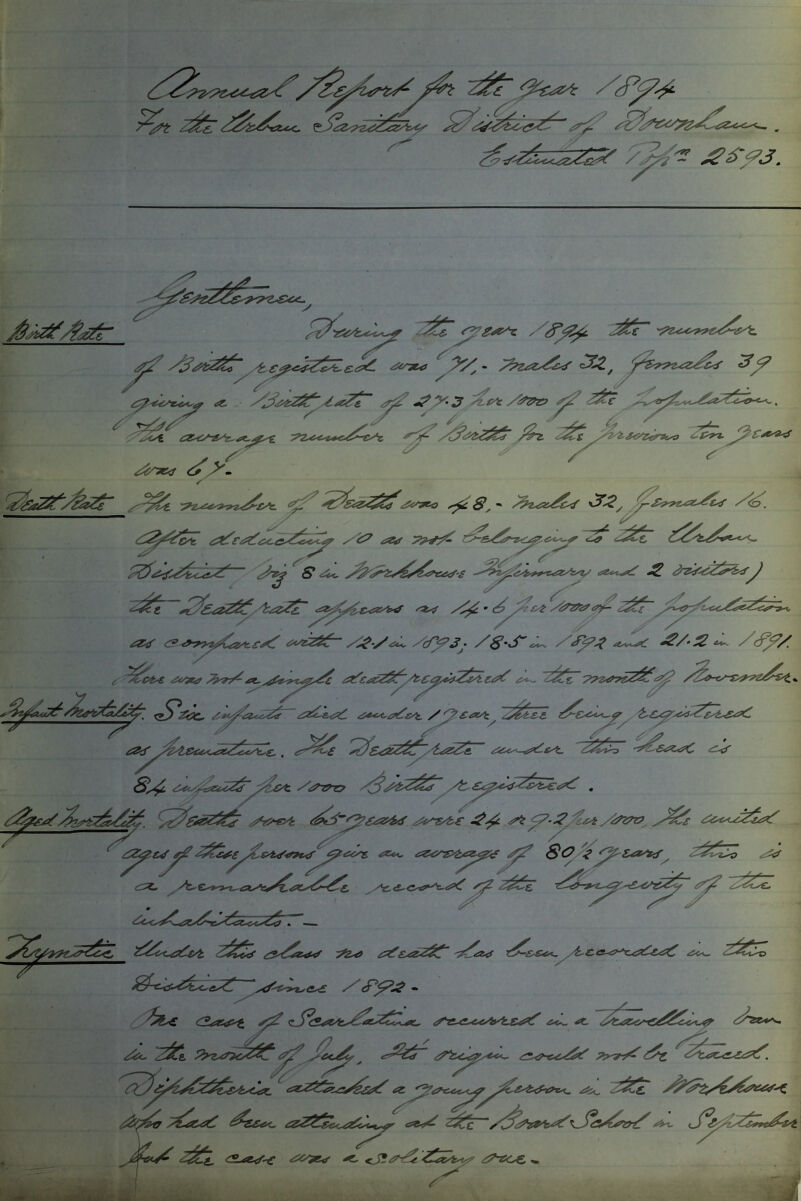 Annual Report for the Year 1894
For the Urban Sanitary District of Downham.
Estimated Popn 2593.
Gentlemen,
Birth Rate During the year 1894 the number
of Births registered was 71,- Males 32, females 39
giving a Birth rate of 27.3 per 1000 of the population.
The average number of Births for the previous ten years
was 67.
Death Rate The number of Deaths was 48,- Males 32, females 16.
After deducting 10 as not belonging to the Urban
District (viz 8 in Workhouse Infirmary and 2 visitors)
the Death rate appears as 14.6 per 1000 of the population
as compared with 12.1 in 1893; 18.5 in 1892 and 21.2 in 1891.
There was not a single death registered in the month of November.
Infant Mortality. Six infants died under 1 year, three being registered
as premature. The Death rate under this head is
84 infants per 1000 Births registered.
Aged Mortality. Deaths over 65 years were 24 or 9.2 per 1000. The united
ages of these persons give an average of 80½ years, this is
a remarkable record of the longevity of the
inhabitants. —
Zymotic Under this class no death has been recorded in this
District since 1892.
One case of Scarlatina occurred in a travelling van
in the month of July. Its origin could not be traced.
Diphtheria attacked a young person in the Workhouse
who had been attending at the Board School in September
but the case was a solitary one.